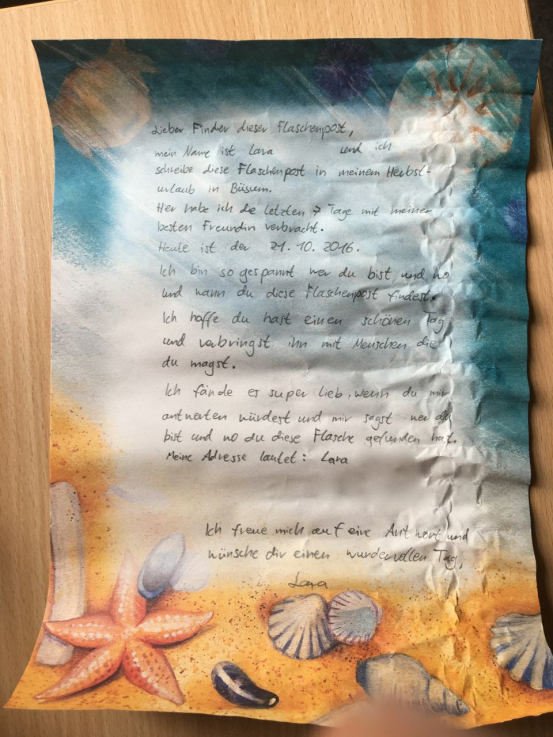 Lieber Finder dieser Flaschenpost,
mein Name ist Lara und ich
schreibe diese Flaschenpost in meinem Herbst-
urlaub in Büsum.
Hier habe ich die letzten 7 Tage mit meiner
besten Freundin verbracht.
Heute ist der 21.10.2016.
Ich bin so gespannt wer du bist und wo
und wann du diese Flaschenpost findest.
Ich hoffe du hast einen schönen Tag
und verbringst ihn mit Menschen die
du magst.
Ich fände es super lieb, wenn du mir
antworten würdest und mir sagst wer du
bist und wo du diese Flasche gefunden hast.
Meine Adresse lautet: Lara
Ich freue mich auf eine Antwort und
wünsche dir einen wundervollen Tag,
Lara